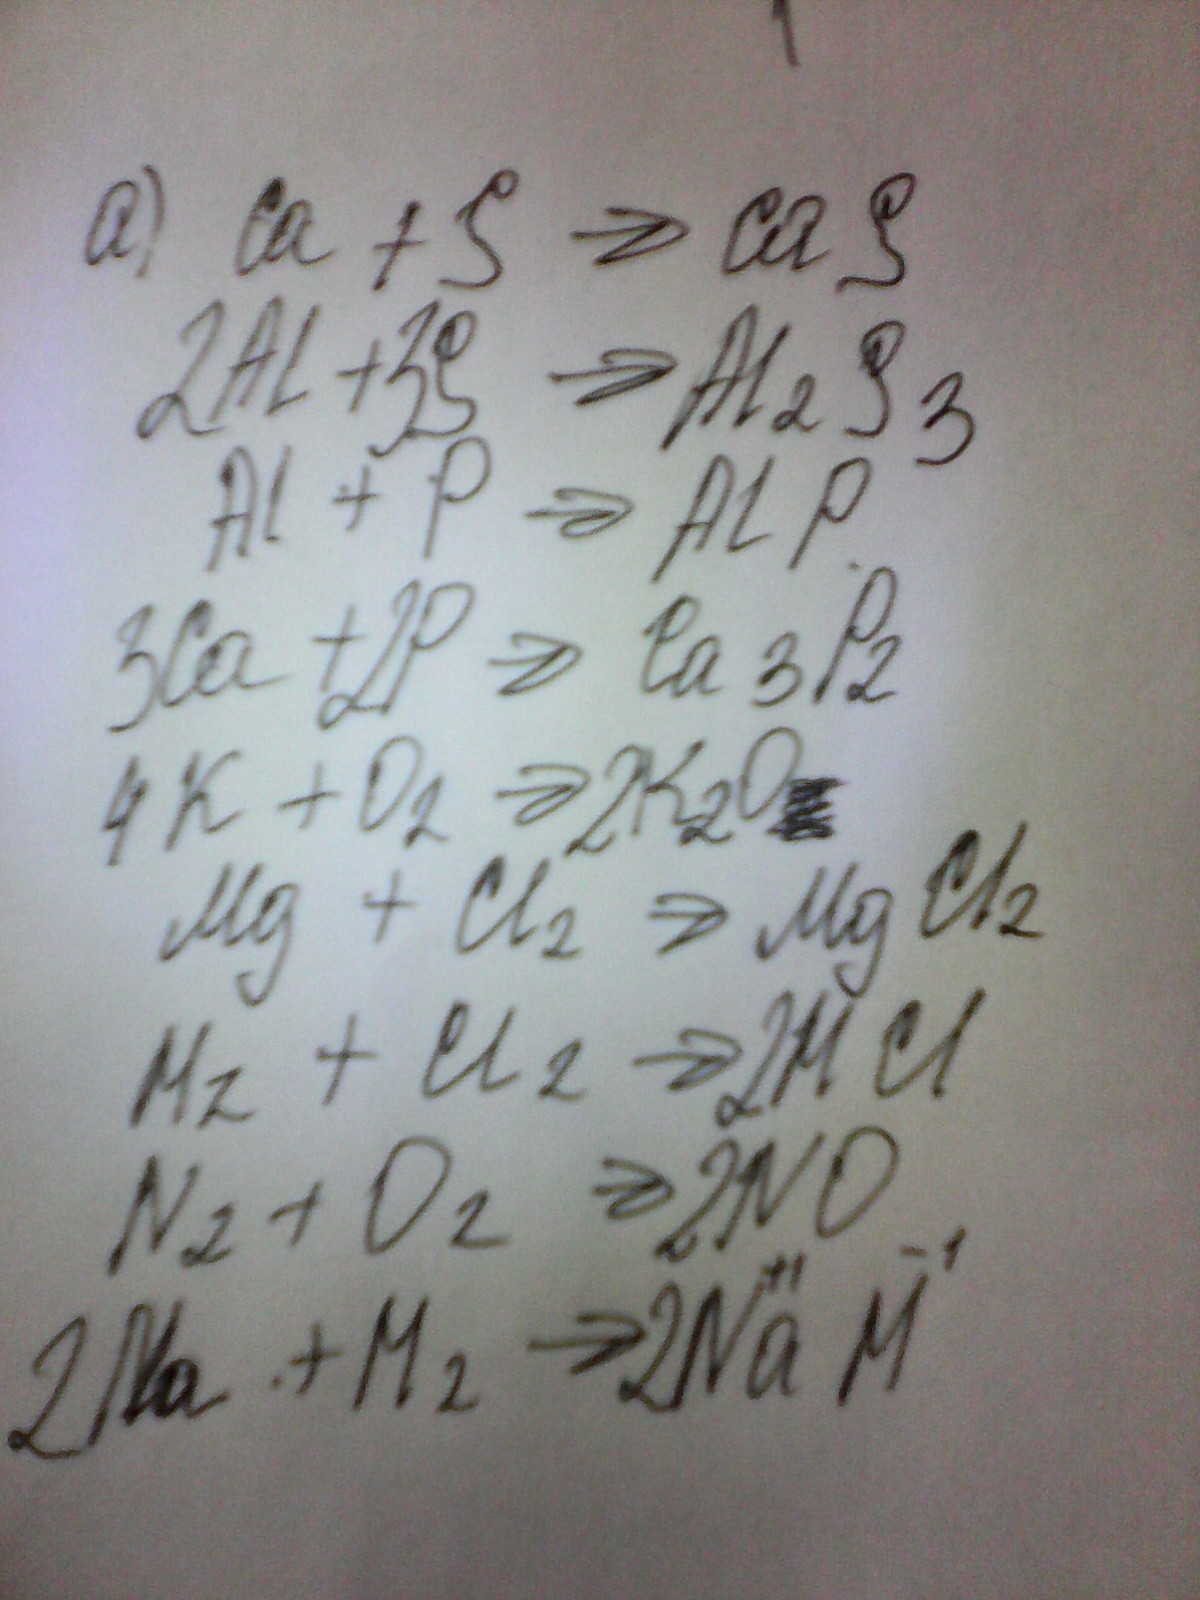 а) Ca + S → CaS
2Al + 3S → Al2S3
Al + P → AlP
3Ca + 2P → Ca3P2
4K + O2 → 2K2O
Mg + Cl2 → MgCl2
H2 + Cl2 → 2HCl
N2 + O2 → 2NO
2Na + H2 → 2Na+1H-1